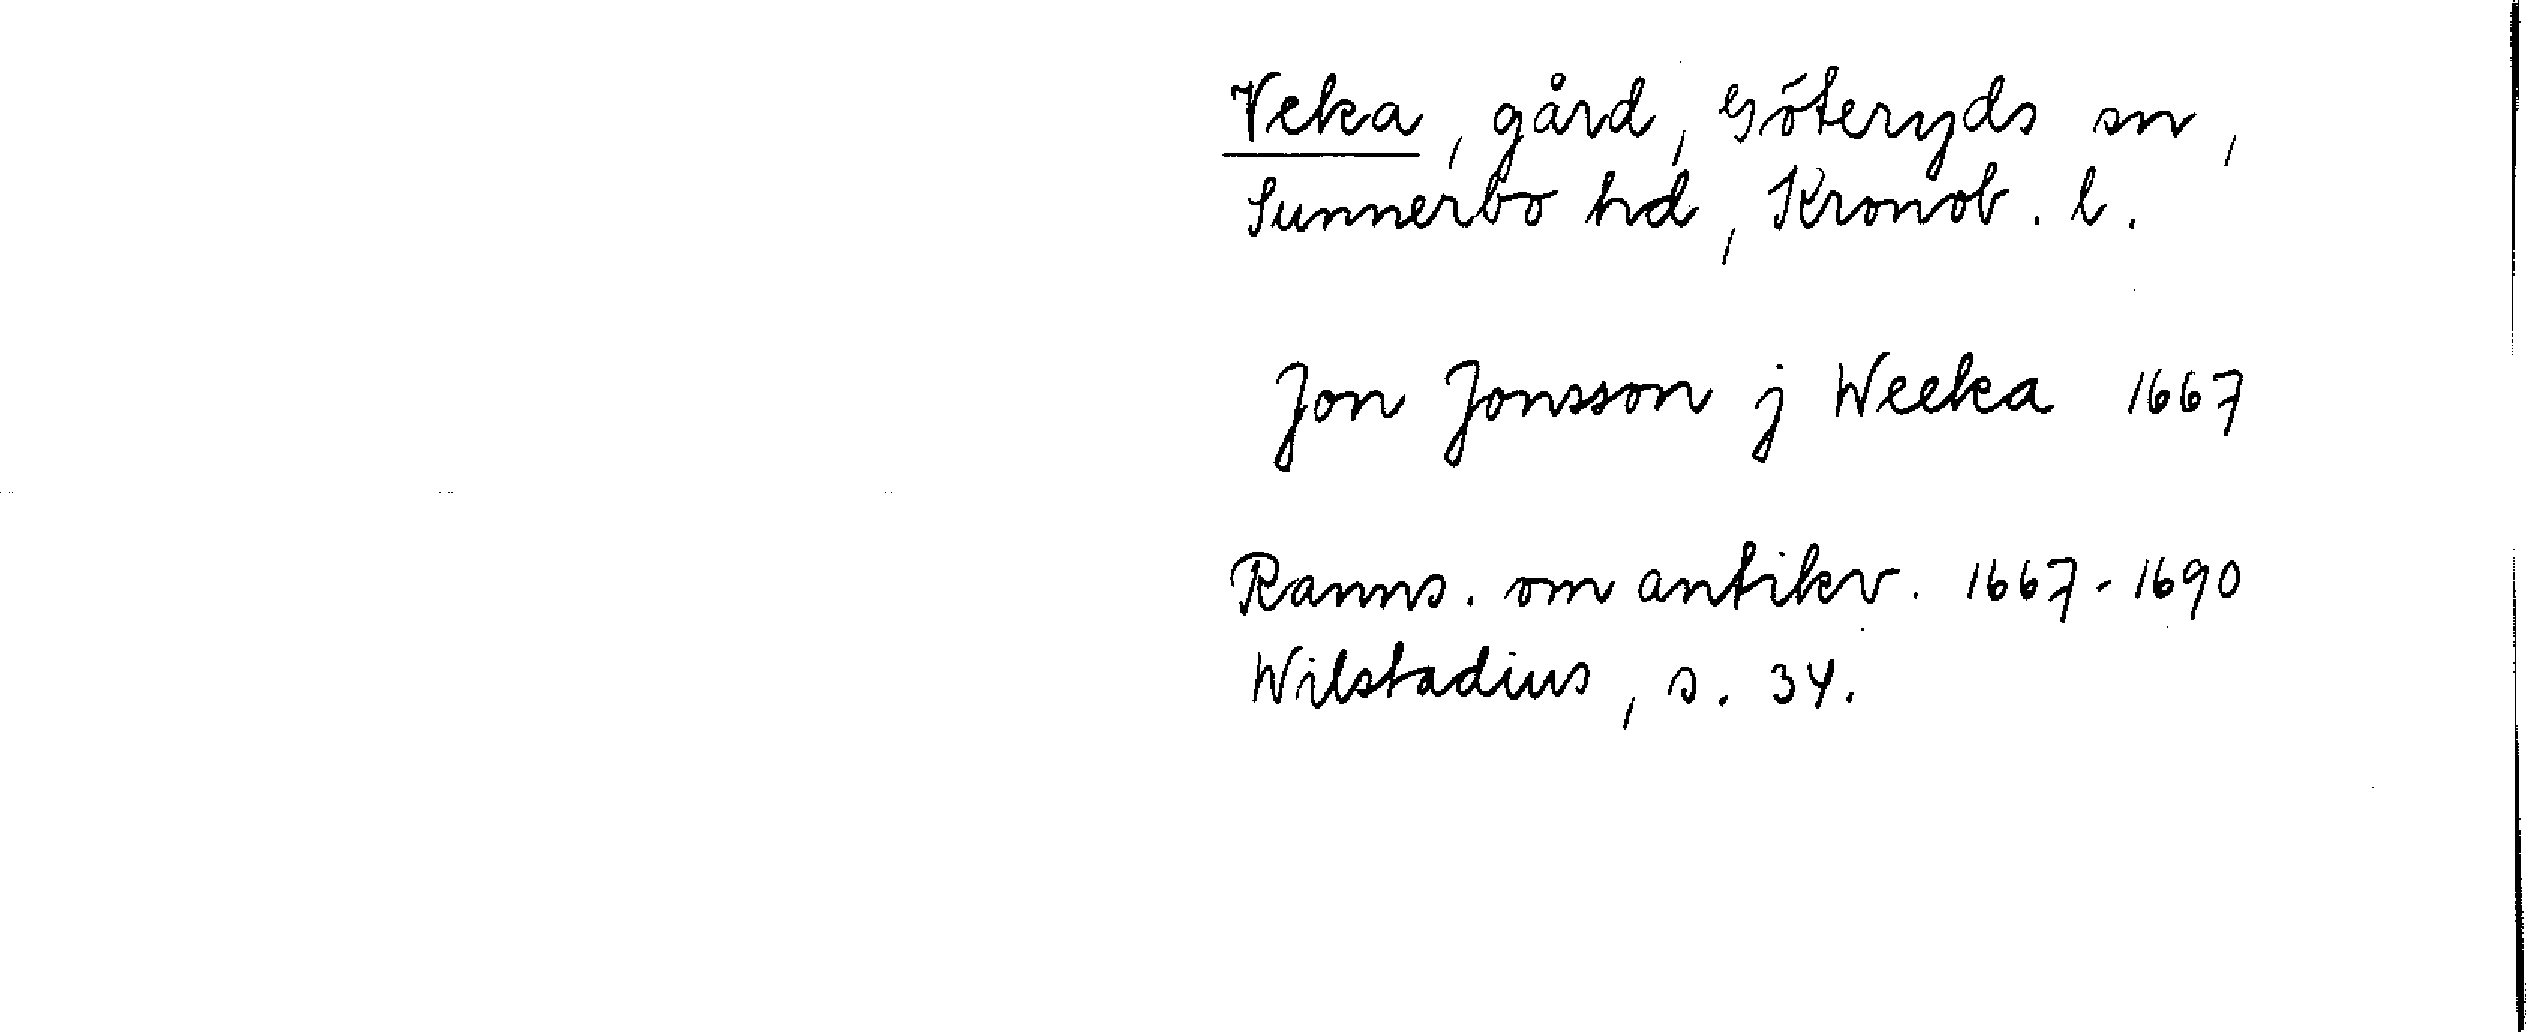 Veka, gård, Göteryds sn,
Sunnerbo hd, Kronob. l.
Jon Jonsson j Weeka 1667
Ranns. om antikv. 1667-1690
Wilstadius, s. 34.